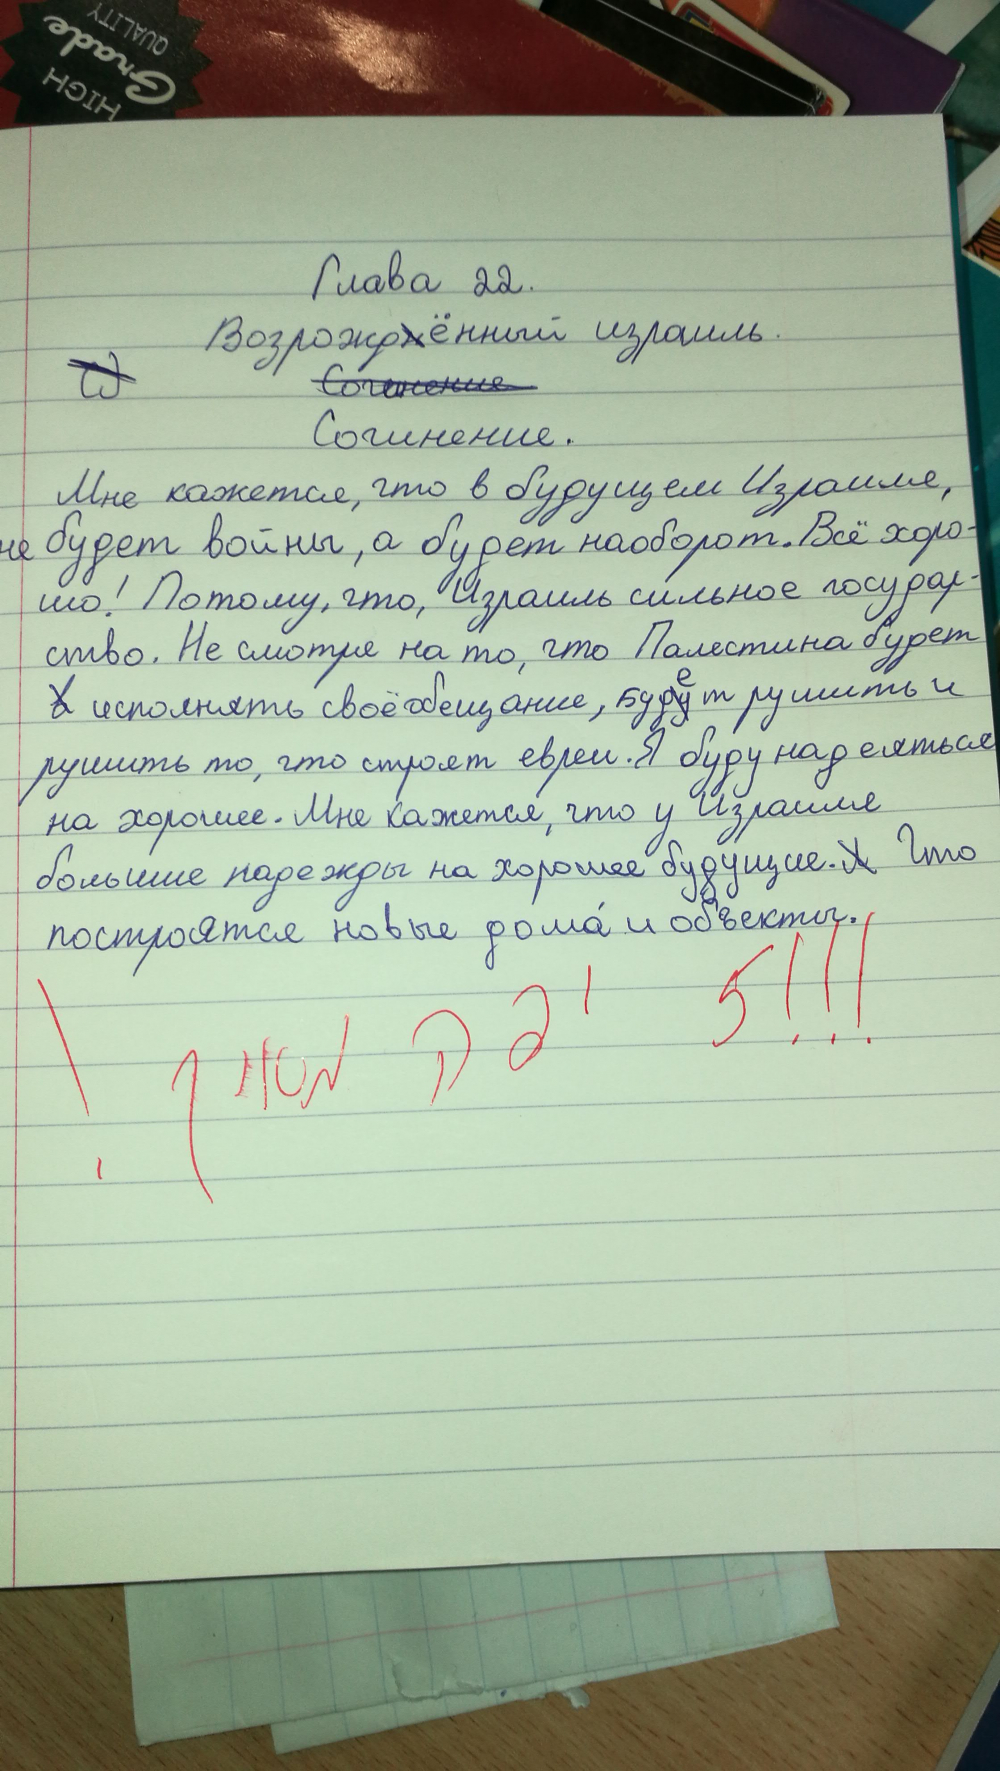 HIGH
Grade
QUALITY
Глава 22.
Возрождённый израиль.
Сочинение
Сочинение.
Мне кажется, что в будущем Израиле,
не будет войны, а будет наоборот. Всё хоро-
шо! Потому, что, Израиль сильное государ-
ство. Не смотря на то, что Палестина будет
исполнять своё обещание, будет рушить и
рушить то, что строят евреи. Я буду надеяться
на хорошее. Мне кажется, что у Израиля
большие надежды на хорошее будущие. Что
построятся новые дома́ и объекты.
5!!!
יפה מאוד!